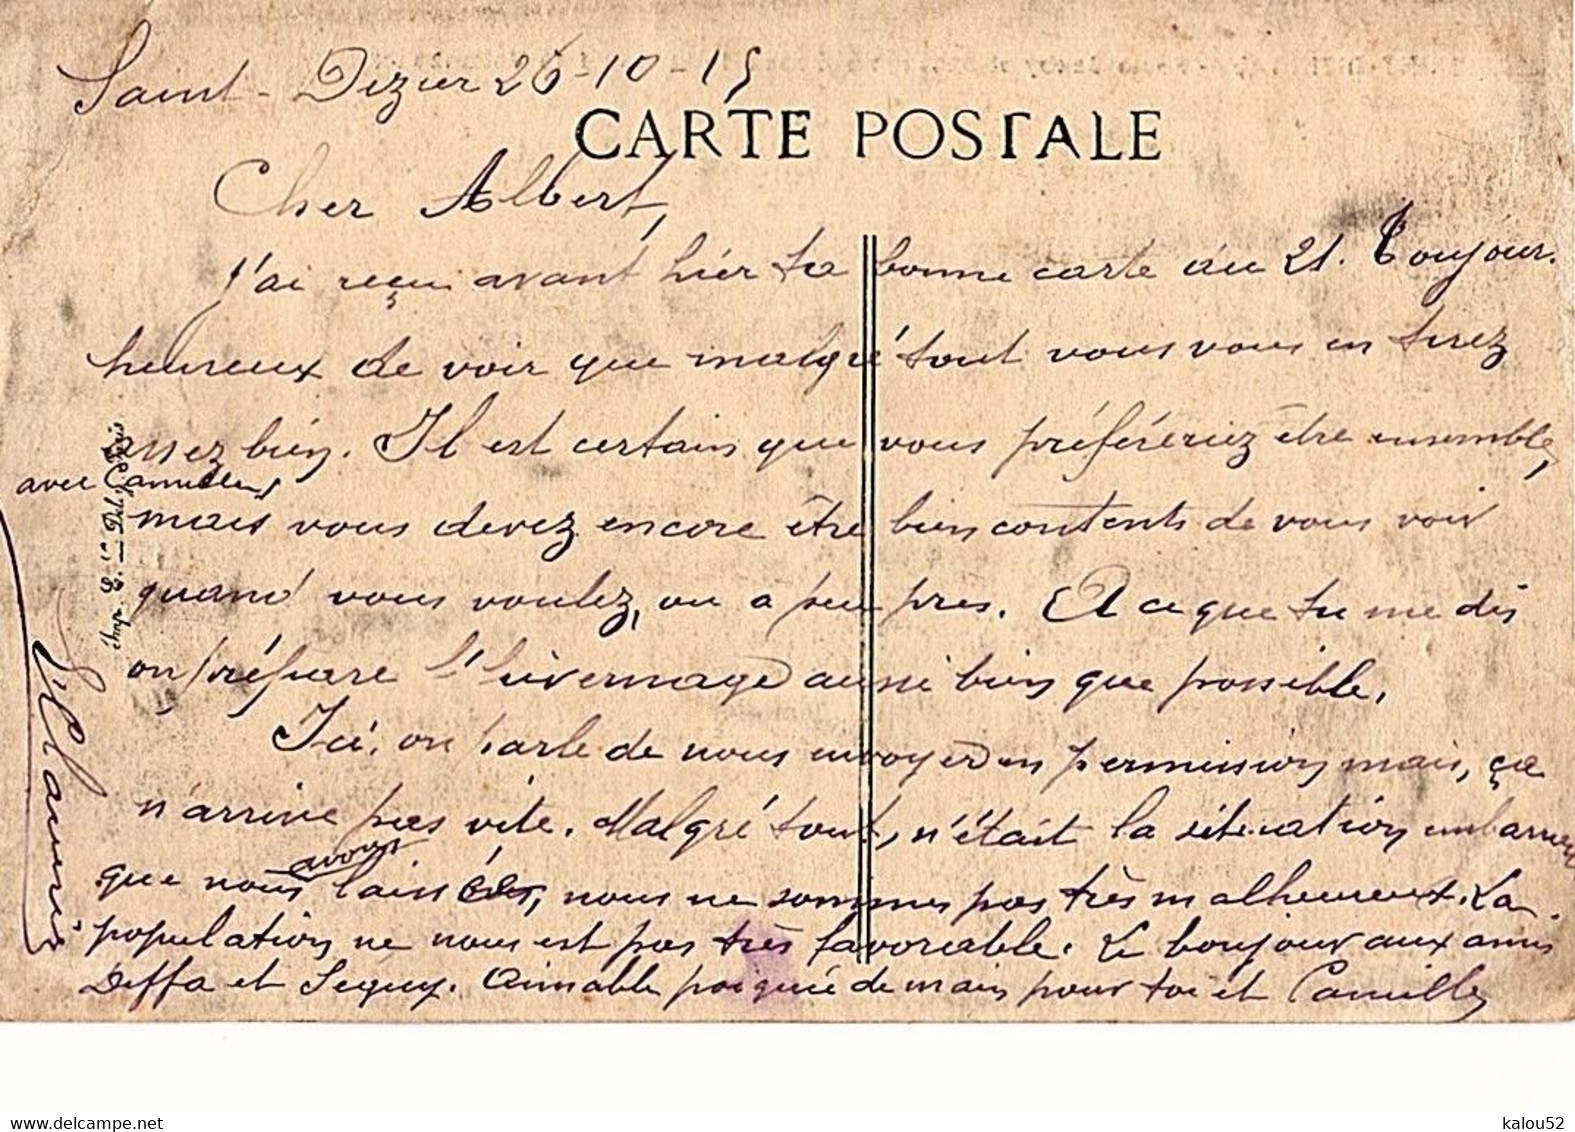 Saint-Dizier 26-10-15
CARTE POSTALE
Cher Albert,
J'ai reçu avant hier ta bonne carte du 21. Toujours
heureux de voir que malgré tout vous vous en tirez
assez bien. Il est certain que vous préféreriez être ensemble,
avec Camille,
mais vous devez encore être bien contents de vous voir
quand vous voulez, ou a peu près. A ce que tu me dis
on prépare l'hivernage aussi bien que possible.
Ici, on parle de nous envoyer en permission mais, ça
n'arrive pas vite. Malgré tout, n'était la situation
avons
que nous laissées, nous ne sommes pas très malheureux. La
population ne nous est pas très favorable. Le bonjour aux amis
Deffa et Seguy. Aimable poignée de main pour toi et Camille
Imp. E. Del
kalou52